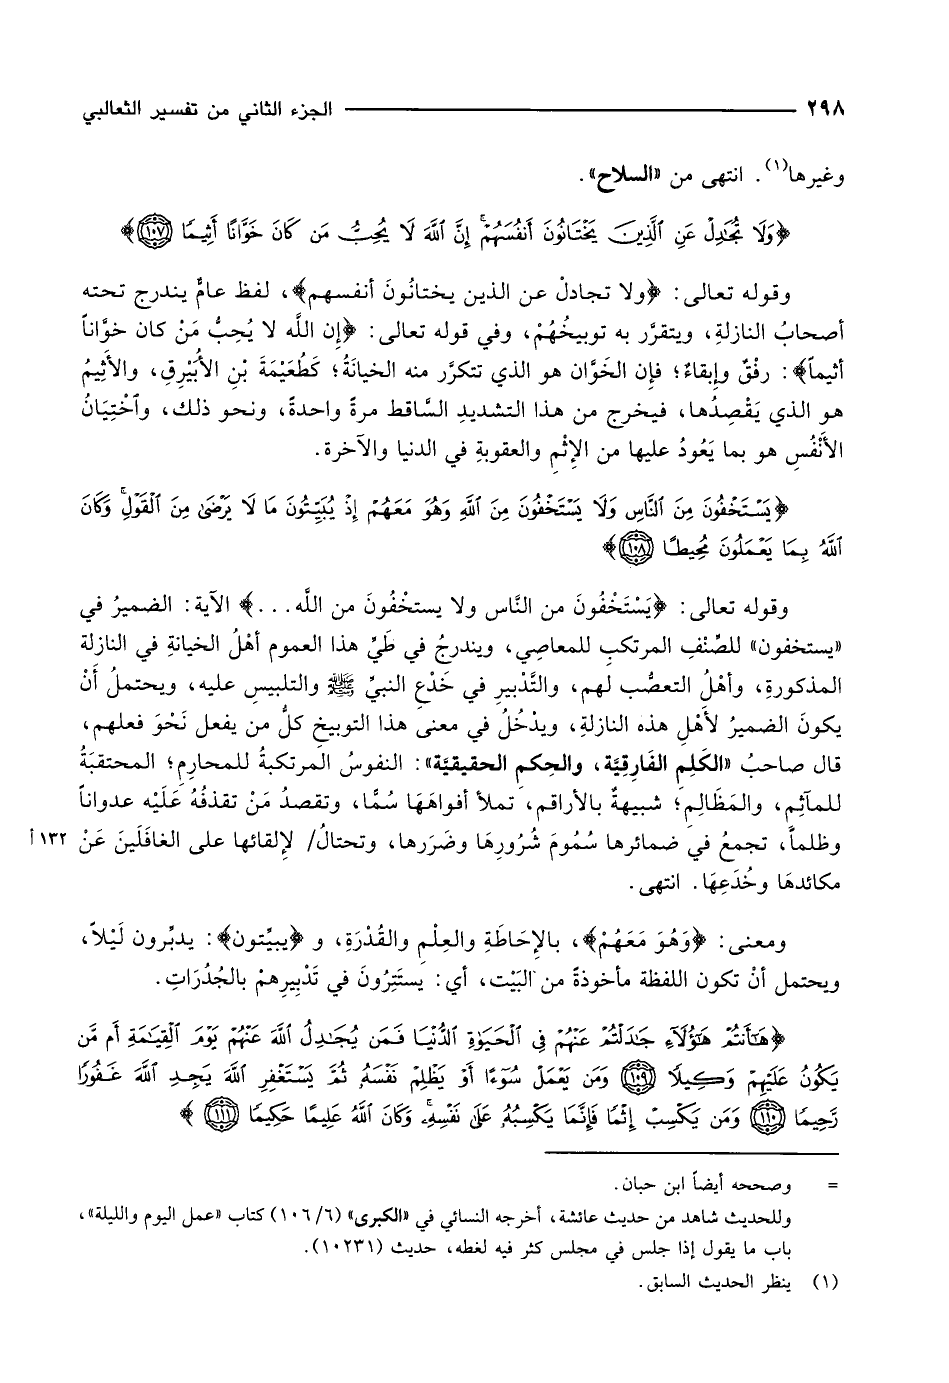 ٢٩٨ ـــــــــ الجزء الثاني من تفسير الثعالبي
وغيرها(١). انتهى من «السلاح».
﴿وَلَا تُجَٰدِلْ عَنِ ٱلَّذِينَ يَخْتَانُونَ أَنفُسَهُمْ ۚ إِنَّ ٱللَّهَ لَا يُحِبُّ مَن كَانَ خَوَّانًا أَثِيمًا ١٠٧﴾
وقوله تعالى: ﴿ولا تجادلْ عن الذين يختانُونَ أنفسهم﴾، لفظ عامٌّ يندرج تحته
أصحابُ النازلةِ، ويتقرَّر به توبيخُهُمْ، وفي قوله تعالى: ﴿إن اللَّه لا يُحِبُّ مَنْ كان خوَّاناً
أثيماً﴾: رفْقٌ وإبقاءٌ؛ فإن الخَوَّان هو الذي تتكرَّر منه الخيانَةُ؛ كَطُعَيْمَةَ بْنِ الأُبَيْرِقِ، والأَثِيمُ
هو الذي يَقْصِدُها، فيخرج من هذا التشديدِ السَّاقط مرةً واحدةً، ونحو ذلك، وٱخْتِيَانُ
الأَنْفُسِ هو بما يَعُودُ عليها من الإِثْمِ والعقوبةِ في الدنيا والآخرة.
﴿يَسْتَخْفُونَ مِنَ ٱلنَّاسِ وَلَا يَسْتَخْفُونَ مِنَ ٱللَّهِ وَهُوَ مَعَهُمْ إِذْ يُبَيِّتُونَ مَا لَا يَرْضَىٰ مِنَ ٱلْقَوْلِ ۚ وَكَانَ
ٱللَّهُ بِمَا يَعْمَلُونَ مُحِيطًا ١٠٨﴾
وقوله تعالى: ﴿يَسْتَخْفُونَ من النَّاس ولا يستخْفُونَ من اللَّه...﴾ الآية: الضميرُ في
«يستخفون» للصِّنْفِ المرتكبِ للمعاصِي، ويندرجُ في طَيِّ هذا العموم أهْلُ الخيانةِ في النازلة
المذكورةِ، وأهْلُ التعصُّب لهم، والتَّدْبيرِ في خَدْعِ النبيِّ ﷺ والتلبيسِ عليه، ويحتملُ أَنْ
يكونَ الضميرُ لأَهْلِ هذه النازلةِ، ويدْخُلُ في معنى هذا التوبيخِ كلُّ من يفعل نَحْوَ فعلهم،
قال صاحبُ «الكَلِمِ الفَارِقِيَّة، والحِكَمِ الحقيقيَّة»: النفوسُ المرتكبةُ للمحارِمِ؛ المحتقبَةُ
للمآثِمِ، والمَظَالِمِ؛ شبيهةٌ بالأراقم، تملأ أفواهَهَا سُمًّا، وتقصدُ مَنْ تقذفُهُ عَلَيْه عدواناً
وظلماً، تجمعُ في ضمائرها سُمُومَ شُرُورِهَا وضَرَرها، وتحتالُ/ لإلقائها على الغافَلَينَ عَنْ ١٣٢ أ
مكائدهَا وخُدَعِهَا. انتهى.
ومعنى: ﴿وَهُوَ مَعَهُمْ﴾، بالإحَاطَةِ والعِلْمِ والقُدْرَةِ، و ﴿يبيِّتون﴾: يدبِّرون لَيْلاً،
ويحتمل أنْ تكون اللفظة مأخوذةً من البَيْت، أي: يستَتِرُونَ في تَدْبِيرِهمْ بالجُدُرَاتِ.
﴿هَٰٓأَنتُمْ هَٰٓؤُلَآءِ جَٰدَلْتُمْ عَنْهُمْ فِى ٱلْحَيَوٰةِ ٱلدُّنْيَا فَمَن يُجَٰدِلُ ٱللَّهَ عَنْهُمْ يَوْمَ ٱلْقِيَٰمَةِ أَم مَّن
يَكُونُ عَلَيْهِمْ وَكِيلًا ١٠٩ وَمَن يَعْمَلْ سُوٓءًا أَوْ يَظْلِمْ نَفْسَهُۥ ثُمَّ يَسْتَغْفِرِ ٱللَّهَ يَجِدِ ٱللَّهَ غَفُورًا
رَّحِيمًا ١١٠ وَمَن يَكْسِبْ إِثْمًا فَإِنَّمَا يَكْسِبُهُۥ عَلَىٰ نَفْسِهِۦ ۚ وَكَانَ ٱللَّهُ عَلِيمًا حَكِيمًا ١١١﴾
= وصححه أيضاً ابن حبان.
وللحديث شاهد من حديث عائشة، أخرجه النسائي في «الكبرى» (١٠٦/٦) كتاب «عمل اليوم والليلة»،
باب ما يقول إذا جلس في مجلس كثر فيه لغطه، حديث (١٠٢٣١).
(١) ينظر الحديث السابق.